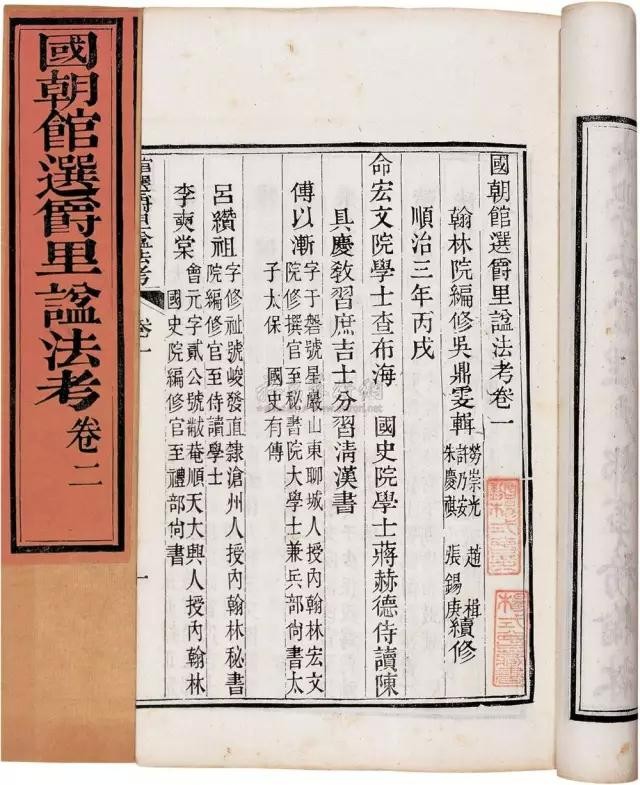 國朝館選爵里諡法考 卷二
國朝館選爵里諡法考卷一
翰林院編修吳鼎雯輯
勞崇光 趙楫
許乃安
朱慶祺 張錫庚
續修
順治三年丙戌
命宏文院學士查布海 國史院學士蔣赫德侍讀陳
具慶敎習庶吉士分習清漢書
傅以漸 字于磐號星巖山東聊城人授內翰林宏文
院修撰官至秘書院大學士兼兵部尙書太
子太保 國史有傳
呂纘祖 字修祉號峻發直隸滄州人授內翰林秘書
院編修官至侍讀學士
李奭棠 會元字貳公號黻菴順天大興人授內翰林
國史院編修官至禮部尙書
館選爵里諡法考 卷一 一